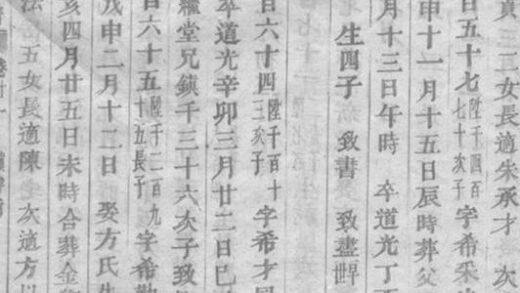 女長適朱承才 次
五十七陞千四百七十次子字希采
申十一月十五日辰時葬父
月十三日午時 卒道光丁
生四子 致書 致盡
百六十四陞千百十三次子字希才
卒道光辛卯三月廿二日巳
繼堂兄鎮千三十六次子致
百六十五陞千二百九十五長子字希
戊申二月十二日 娶方氏
亥四月廿五日未時合葬金
五女長適陳 次適方